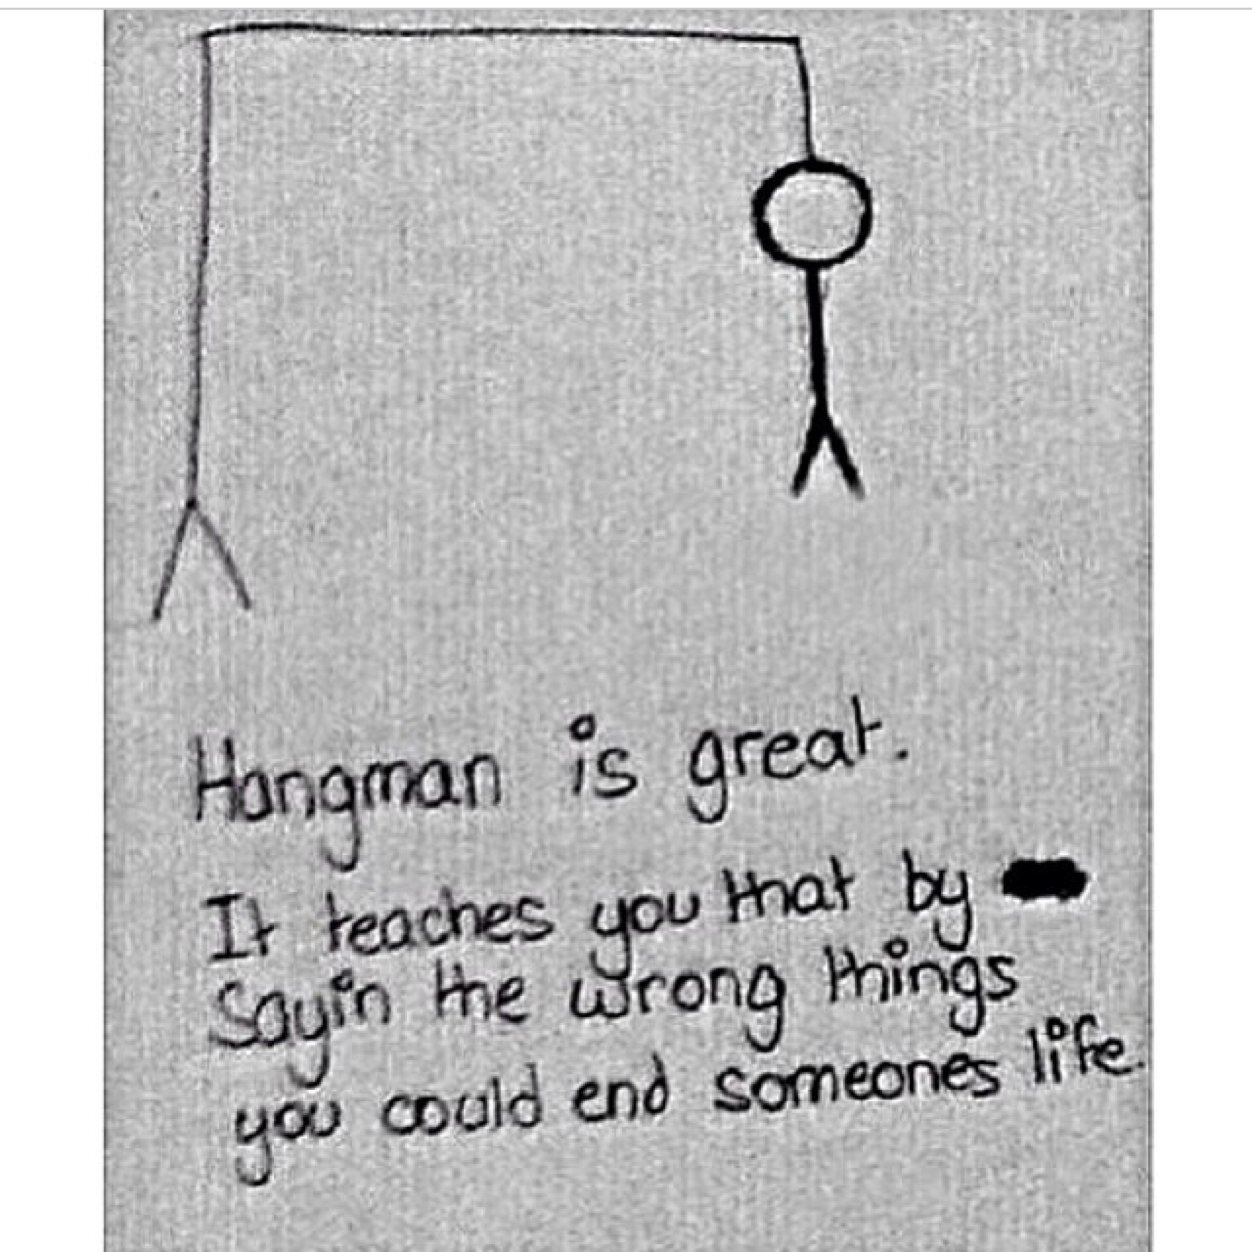 Hangman is great.
It teaches you that by
Sayin the wrong things
you could end someones life.